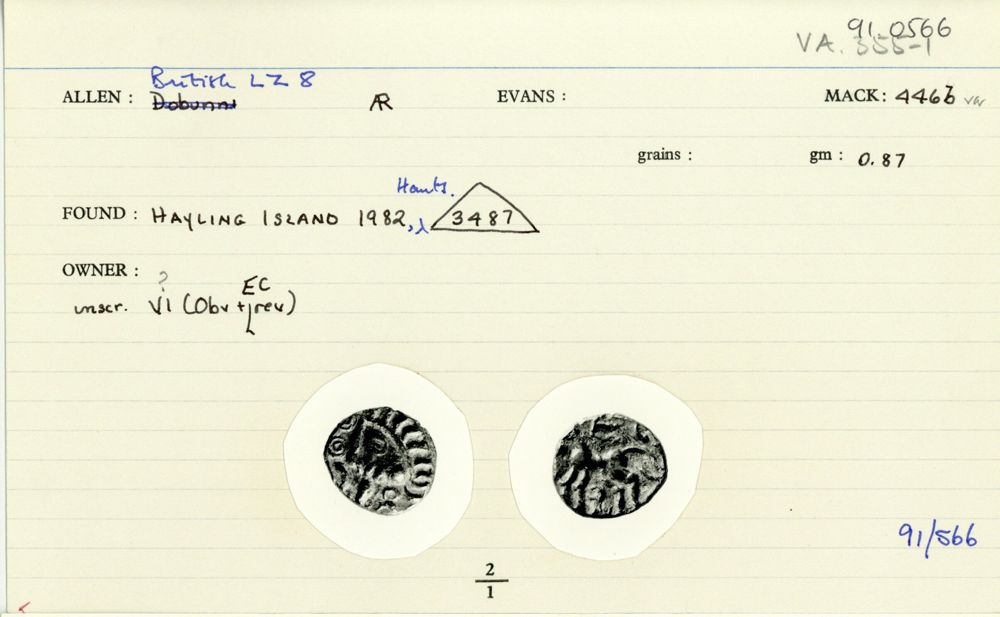 91.0566
VA. 355-1
British LZ 8
ALLEN : Dobunni AR EVANS : MACK: 446b var
grains : gm : 0.87
Hants.
FOUND : HAYLING ISLAND 1982, 3487
OWNER :
?
EC
unscr. VI (Obv + rev)
91/566
2
1